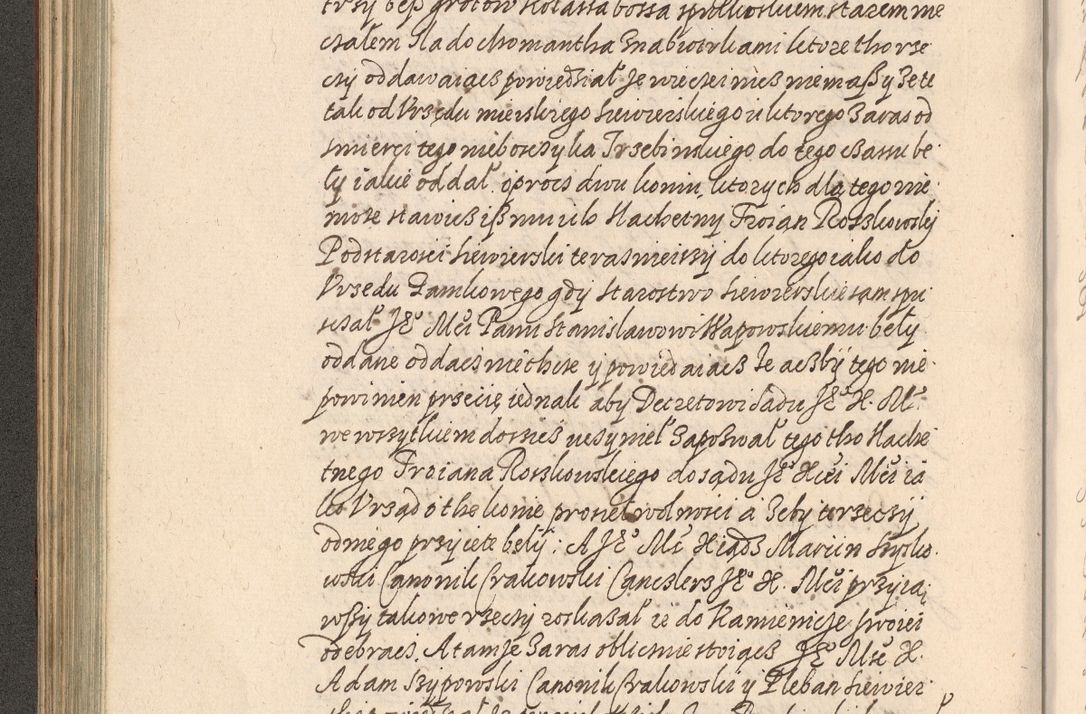 trzy bess grotow kotassa bossa spolkoskiem starem me
czalem sla do chomantha Znabiotrkami ktore tho rze
czy oddawaiącz powiedział że więczei nicz niema yssy że te
tak od Vrzędu mieiskiego siewierskiego v ktorego Zaras od
smierci tego nieboszyka Trzebinskiego do tego czassu be
ły iakie oddał oprocz dwu koniu ktorych dla tego nie
może stawicz iss mu ich Slachetny Troian Roszkowsky
Podstarosci siewierski terasnieiszy do ktorego iako do
Vrzedu Zamkowego gdy starostwo siewierskie sam spu
sczał Je⁰ Mści Panu Stanislawowi Wapowskiemu beły
oddane oddacz nie chce y powiedaiącz że aczby tego nie
powinien przecię iednak aby Decretowi sądu Je⁰ X. M.
we wszytkiem dosicz uczynieł Zapozwał tego tho Slache
tnego Troiana Roszkowskiego do sądu Je⁰ Xiei Mści ia
ko Vrząd o the konie prosieł wolnosci a żeby te rzeczy
od niego przyięte beły: A Je⁰ Mć Xiądz Marcin Szysko
wski Canonik Crakowski Canczlerz Je⁰ X. Mści przyią
wssy takowe rzeczy roskazał ie do Kamienicze swoiei
odebracz. A tamże Zaras oblicznie stoiącz Je⁰ Mść X.
Adam Szypowski Canonik Crakowski y Pleban siewier